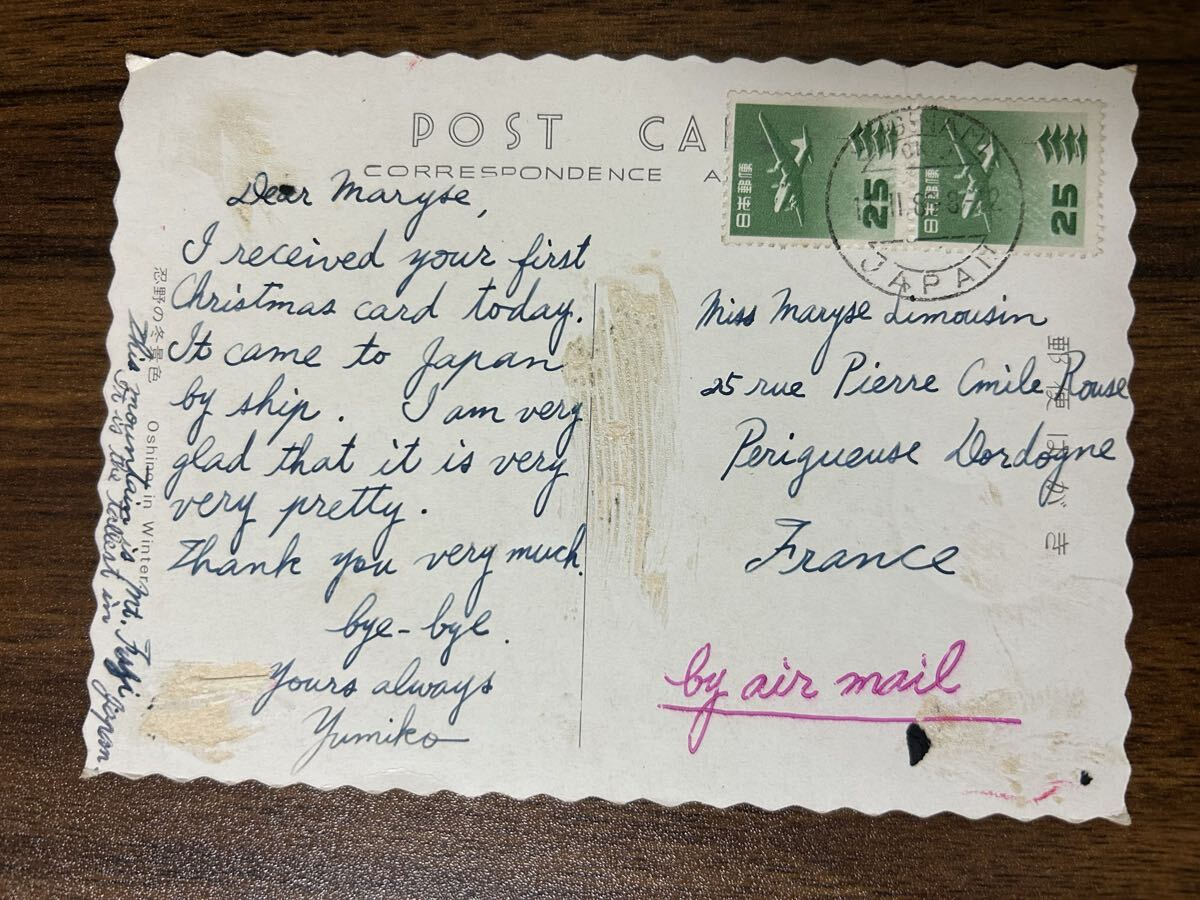 POST CA
CORRESPONDENCE A
日本郵便
25
日本郵便
25
JAPAN
Dear Maryse,
I received your first
Christmas card today.
It came to Japan
by ship. I am very
glad that it is very
very pretty.
Thank you very much.
bye-bye.
Yours always
Yumiko
忍野の冬景色 Oshino in Winter
This mountain is Mt. Fuji.
It is the tallest in Japan.
Miss Maryse Limousin
25 rue Pierre Emile Rouse
Perigueuse Dordogne
France
by air mail
郵便はがき